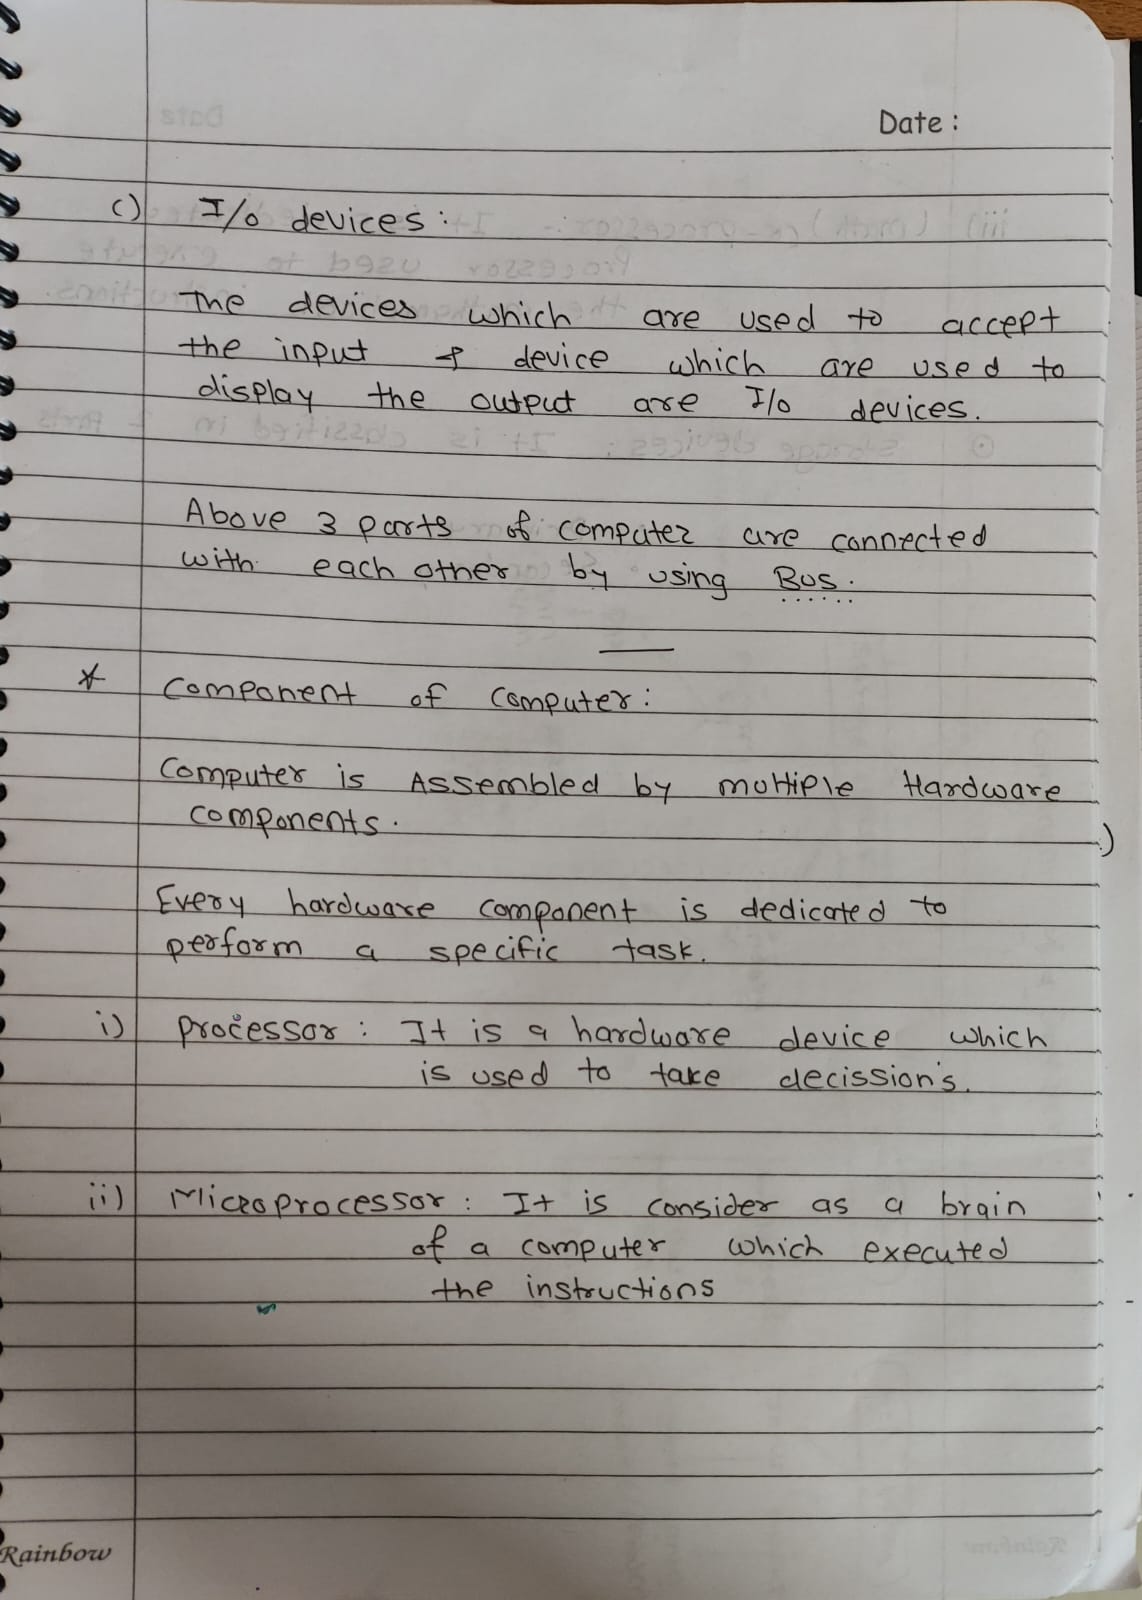 Date :
c) I/o devices :
The devices which are used to accept
the input & device which are used to
display the output are I/o devices.
Above 3 parts of computer are connected
with each other by using Bus.
* Component of computer :
Computer is Assembled by multiple Hardware
components.
Every hardware component is dedicated to
perform a specific task.
i) Processor : It is a hardware device which
is used to take decissions.
ii) Microprocessor : It is consider as a brain
of a computer which executed
the instructions
Rainbow